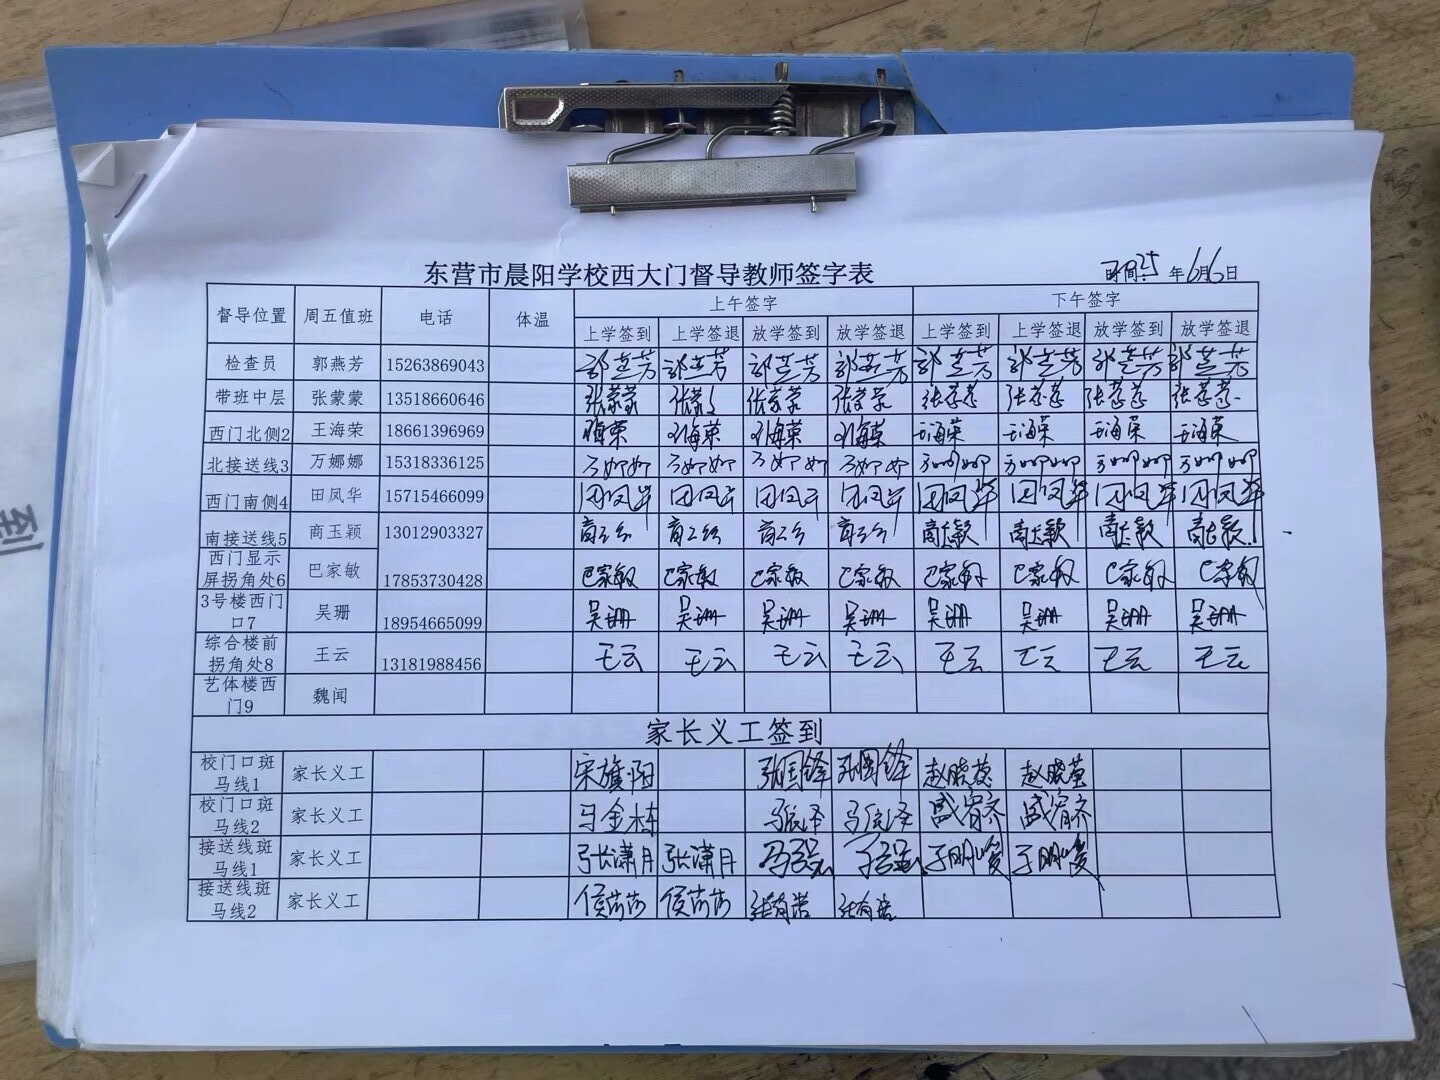 东营市晨阳学校西大门督导教师签字表
时间:25年6月6日
督导位置 周五值班 电话 体温 上午签字 下午签字
上学签到 上学签退 放学签到 放学签退 上学签到 上学签退 放学签到 放学签退
检查员 郭燕芳 15263869043 郭燕芳 郭燕芳 郭燕芳 郭燕芳 郭燕芳 郭燕芳 郭燕芳 郭燕芳
带班中层 张蒙蒙 13518660646 张蒙蒙 张蒙 张蒙蒙 张蒙蒙 张蒙蒙 张蒙蒙 张蒙蒙 张蒙蒙
西门北侧2 王海荣 18661396969 王海荣 王海荣 王海荣 王海荣 王海荣 王海荣 王海荣 王海荣
北接送线3 万娜娜 15318336125 万娜娜 万娜娜 万娜娜 万娜娜 万娜娜 万娜娜 万娜娜 万娜娜
西门南侧4 田凤华 15715466099 田凤华 田凤华 田凤华 田凤华 田凤华 田凤华 田凤华 田凤华
南接送线5 商玉颖 13012903327 商玉颖 商玉颖 商玉颖 商玉颖 商玉颖 商玉颖 商玉颖 商玉颖
西门显示屏拐角处6 巴家敏 17853730428 巴家敏 巴家敏 巴家敏 巴家敏 巴家敏 巴家敏 巴家敏 巴家敏
3号楼西门口7 吴珊 18954665099 吴珊 吴珊 吴珊 吴珊 吴珊 吴珊 吴珊 吴珊
综合楼前拐角处8 王云 13181988456 王云 王云 王云 王云 王云 王云 王云 王云
艺体楼西门9 魏闻
家长义工签到
校门口斑马线1 家长义工 宋旗阳 张国锋 张国锋 赵晓蕾 赵晓蕾
校门口斑马线2 家长义工 马金栋 盛宥齐 盛宥齐
接送线斑马线1 家长义工 张潇月 张潇月 于明峻 于明峻
接送线斑马线2 家长义工 侯莎莎 侯莎莎 张有浩 张有浩
到